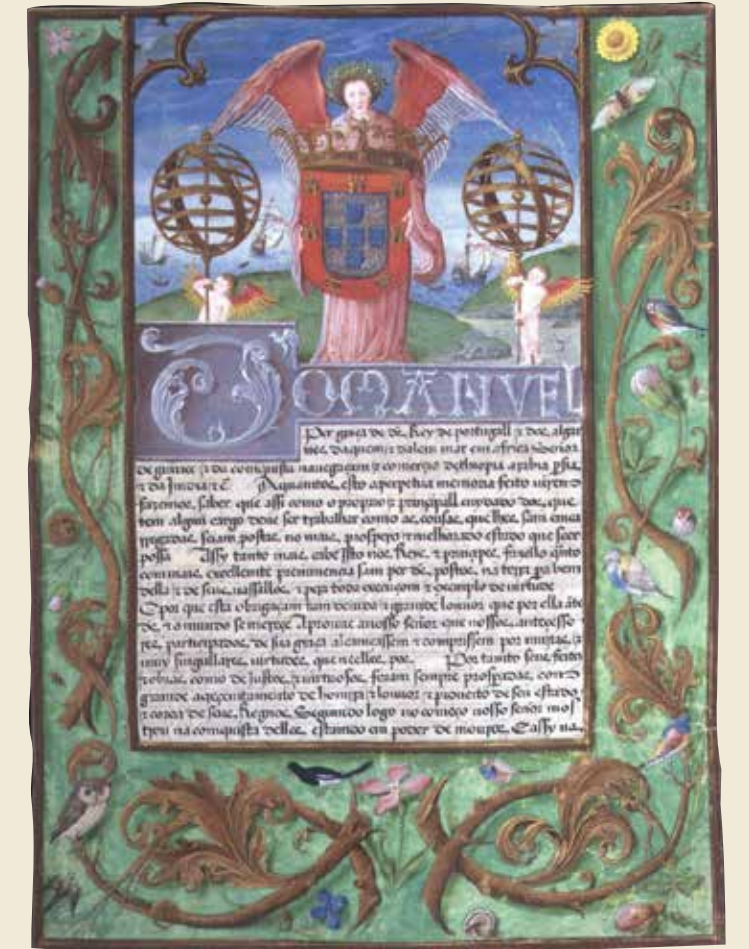 DOMANVEL
Per graça de dš, Rey de portugall z dos algar
ues, daquem z dalem mar em africa Senor
de guinee z da comquista nauegaçam z comerçio dethiopia arabia psia
z da Jmdia zc Aquantos, esto a perpetua memoria feito virem
fazemos, saber que assi como o proprio z principall cuydado dos, que
tem algum cargo deue ser trabalhar como as, cousas, que lhes, sam
regadas, seiam postas, no mais, prospero z melhorado estado que seer
possa Assy tanto mais, cabe jsto nos Reys, z principes, fazello
com mais, excellemte preminençia sam per ds, postos, na terra pa bem
della z de seus, vassallos, z pera toda execuçom z exemplo de virtude
E por que esta obrigaçam tam deuida z grande louuor que por ella
ds, z o mundo se mereçe Aprouue a nosso senor que nossos, anteçesso
res, participados, de sua graça alcamçassem z comprissem por muitas, z
muy singullares, virtudes, que nelles, pos, Por tanto seus, feitos
z obras, como de justos, z virtuosos, foram sempre prosperadas, com
grande acreçentamento de homrra z louuor z proueito de seu estado
z coroa de seus, Regnos, Seguimdo logo no começo nosso senor mos
trou na comquista delles, estamdo em poder de mouros, E assy na,